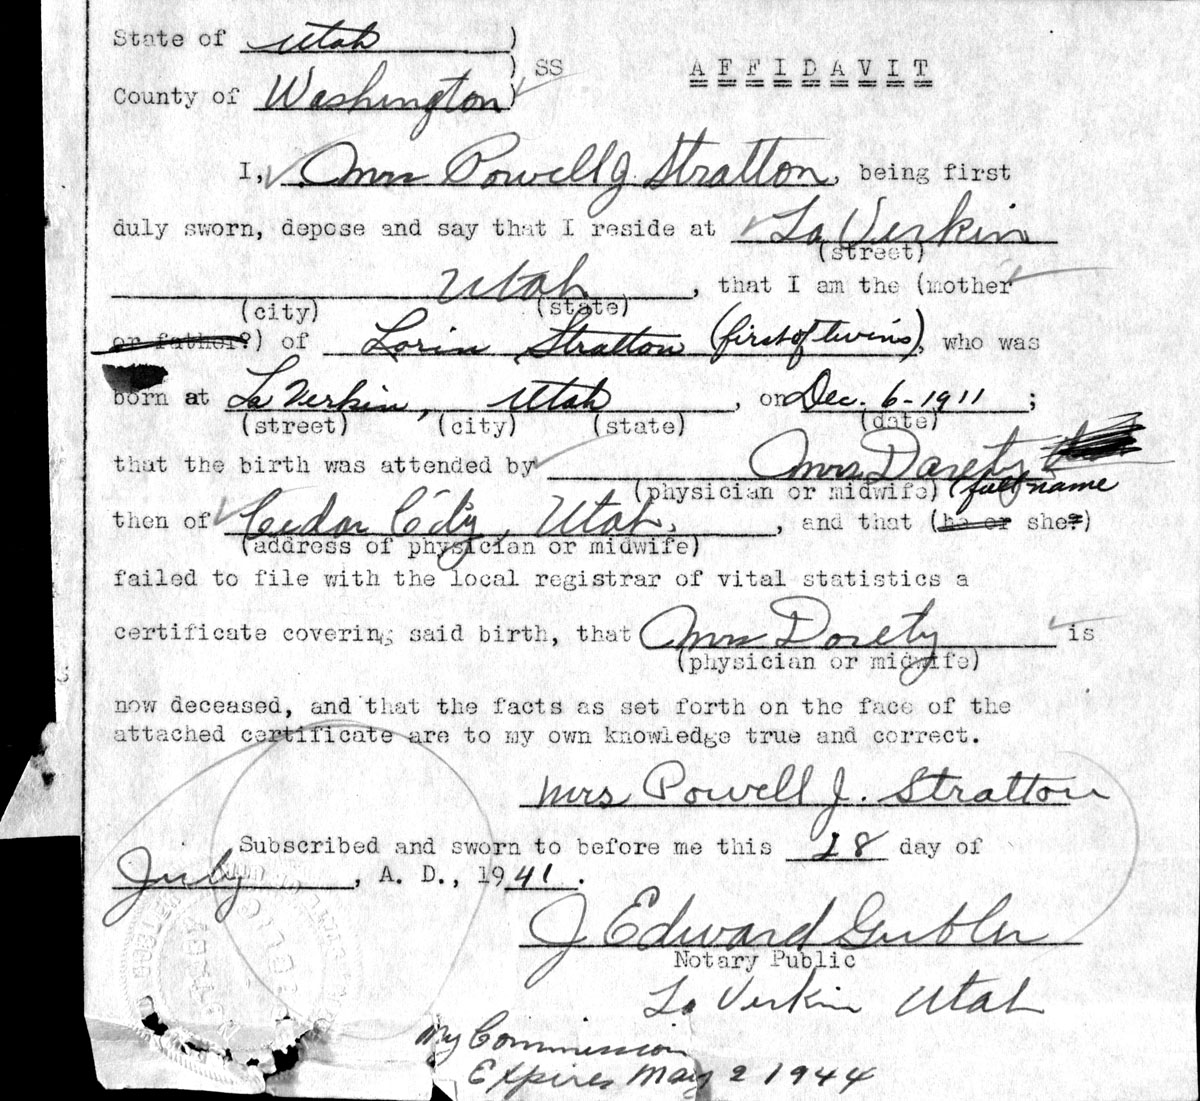 State of Utah )
) SS AFFIDAVIT
County of Washington )
I, Mrs Powell J. Stratton, being first
duly sworn, depose and say that I reside at La Verkin
(street)
Utah, that I am the (mother
(city) (state)
or father?) of Lorin Stratton (first of twins), who was
born at La Verkin, Utah, on Dec. 6-1911;
(street) (city) (state) (date)
that the birth was attended by Mrs Dorety
(physician or midwife) (full name
then of Cedar City, Utah, and that (he or she?)
(address of physician or midwife)
failed to file with the local registrar of vital statistics a
certificate covering said birth, that Mrs Dorety is
(physician or midwife)
now deceased, and that the facts as set forth on the face of the
attached certificate are to my own knowledge true and correct.
Mrs Powell J. Stratton
Subscribed and sworn to before me this 28 day of
July, A. D., 1941.
J Edward Gubler
Notary Public
La Verkin Utah
My Commission
Expires May 2 1944